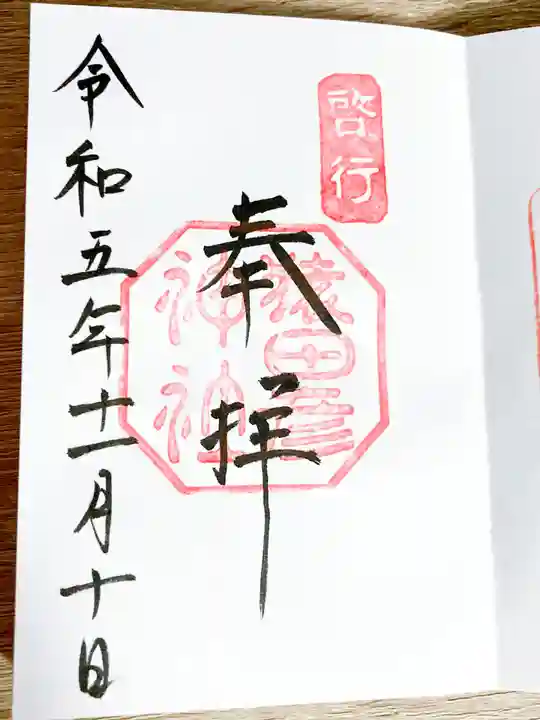 啓行
奉拝
猿田彦
神社
令和五年十一月十日